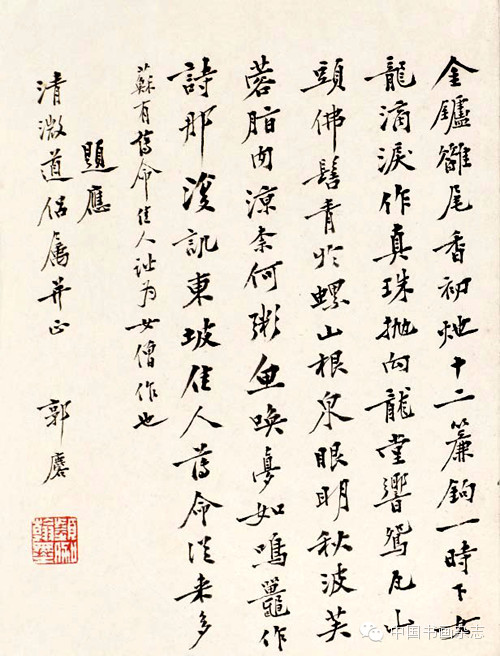 金鑪尾香初灺十二簾鉤一時下女
龍滴淚作真珠拋向龍堂響鴛瓦山
頭佛髻青於螺山根泉眼明秋波芙
蓉脂肉涼奈何粥魚喚夢如鳴鼉作
詩那復訊東坡佳人薄命從来多
蘇有薄命佳人为女僧作也
題應
清溦道侶屬并正 郭麐
頻伽翰墨
中国书画杂志